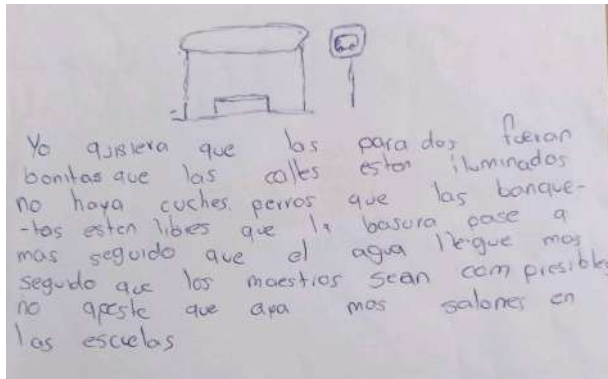 Yo quisiera que las paradas fueran
bonitas que las calles esten iluminados
no haya cuches perros que las banque-
-tas esten libres que la basura pase a
mas seguido que el agua llegue mas
seguido que los maestros sean compresibles
no apeste que aya mas salones en
las escuelas